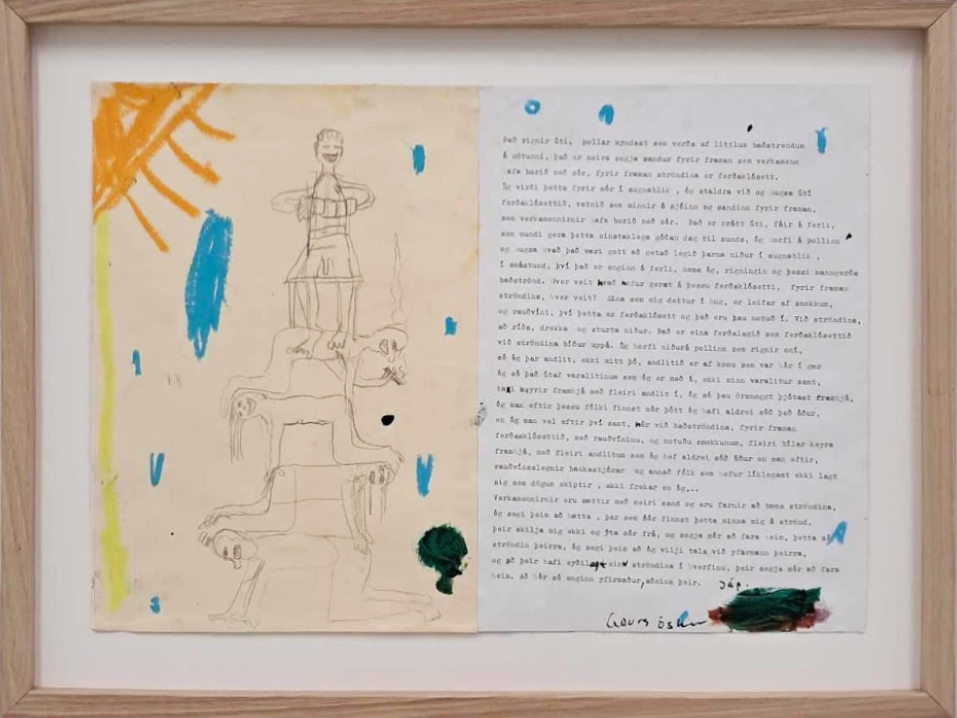 Það rignir úti, pollar myndast sem verða af littlum baðströndum
á götunni, það er meira segja sandur fyrir framan sem verkamenn
hafa borið með sér, fyrir framan ströndina er ferðaklósett.
Ég virði þetta fyrir mér í augnablik , ég staldra við og hugsa útí
ferðaklósettið, vatnið sem minnir á sjóinn og sandinn fyrir framan,
sem verkamennirnir hafa borið með sér. Það er grátt úti, fáir á ferli,
sem mundi gera þetta einstaklega góðan dag til sunds, ég horfi á pollinn
og hugsa hvað það væri gott að getað legið þarna niður í augnablik ,
í smástund, því það er enginn á ferli, nema ég, rigningin og þessi manngerða
baðströnd. Hver veit hvað hefur gerst á þessu ferðaklósetti, fyrir framan
ströndina, hver veit? sem mig dettur í hug, er leifar af smokkum,
og rauðvíni, því þetta er ferðaklósett og það eru þau notuð í. Við ströndina,
að ríða, drekka og sturta niður. Það er eina ferðalagið sem ferðaklósettið
við ströndina bíður uppá. Ég horfi niðurá pollinn sem rignir oní,
sé ég þar andlit, ekki mitt þó, andlitið er af konu sem var hér í gær
ég sé það útaf varalitinum sem ég er með á, ekki minn varalitur samt,
taxi keyrir framhjá með fleiri andlit í, ég sé þau örsnöggt þjótast framhjá,
ég man eftir þessu fólki finnst mér þótt ég hafi aldrei séð það áður,
en ég man vel eftir því samt, hér við baðströndina, fyrir framan
ferðaklósettið, með rauðvíninu, og notuðu smokkunum, fleiri bílar keyra
framhjá, með fleiri andlitum sem ég hef aldrei séð áður en man eftir,
rauðvínslegnir bankastjórar og annað fólk sem hefur líklegast ekki lagt
sig sem dögum skiptir , ekki frekar en ég...
Verkamennirnir eru mættir með meiri sand og eru farnir að tæma ströndina,
ég segi þeim að hætta , þar sem mér finnst þetta minna mig á strönd,
þeir skilja mig ekki og ýta mér frá, og segja mér að fara heim, þetta sé
ströndin þeirra, ég segi þeim að ég vilji tala við yfirmann þeirra,
og að þeir hafi eyðilagt einu ströndina í hverfinu, þeir segja mér að fara
heim. Að hér sé enginn yfirmaður, aðeins þeir. Jáp.